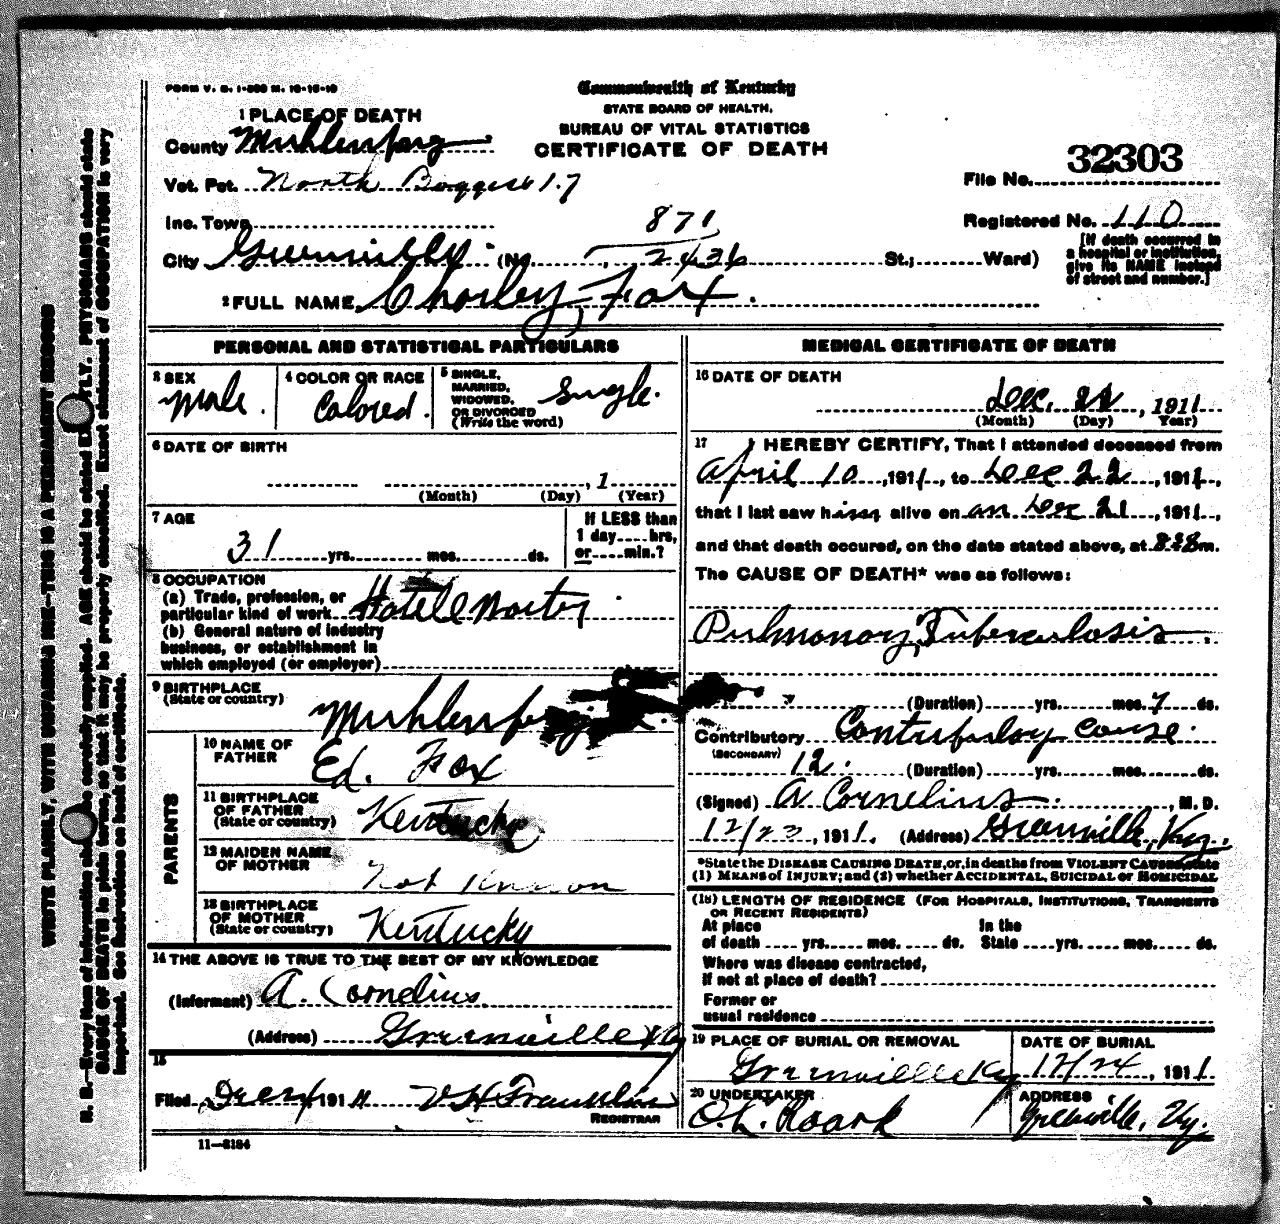 FORM V. S. 1-300 M. 10-15-10
Commonwealth of Kentucky
STATE BOARD OF HEALTH.
BUREAU OF VITAL STATISTICS
CERTIFICATE OF DEATH
1 PLACE OF DEATH
County Muhlenberg
Vot. Pct. North 17
Inc. Town
City Greenville (No. 871 2436 St.; Ward)
File No. 32303
Registered No. 110
[If death occurred in
a hospital or institution,
give its NAME instead
of street and number.]
2 FULL NAME Charley Fox
PERSONAL AND STATISTICAL PARTICULARS
3 SEX
Male.
4 COLOR OR RACE
Colored.
5 SINGLE,
MARRIED,
WIDOWED,
OR DIVORCED
(Write the word)
Single.
6 DATE OF BIRTH
, 1
(Month) (Day) (Year)
7 AGE
31 yrs. mos. ds.
If LESS than
1 day....hrs,
or....min.?
8 OCCUPATION
(a) Trade, profession, or
particular kind of work Hotell
(b) General nature of industry
business, or establishment in
which employed (or employer)
9 BIRTHPLACE
(State or country)
Muhlenberg
PARENTS
10 NAME OF
FATHER
Ed. Fox
11 BIRTHPLACE
OF FATHER
(State or country)
Kentucky
12 MAIDEN NAME
OF MOTHER
Not Known
13 BIRTHPLACE
OF MOTHER
(State or country)
Kentucky
14 THE ABOVE IS TRUE TO THE BEST OF MY KNOWLEDGE
(Informant) A. Cornelius
(Address) Greenville Ky
15
Filed 1911 REGISTRAR
11—3184
MEDICAL CERTIFICATE OF DEATH
16 DATE OF DEATH
Dec. 22, 1911
(Month) (Day) Year)
17 I HEREBY CERTIFY, That I attended deceased from
April 10, 1911, to Dec 22, 1911,
that I last saw him alive on on Dec 21, 1911,
and that death occured, on the date stated above, at m.
The CAUSE OF DEATH* was as follows:
Pulmonary Tuberculosis.
(Duration) yrs. mos. 7 ds.
Contributory cause.
(SECONDARY)
12. (Duration) yrs. mos. ds.
(Signed) A Cornelius, M. D.
12/23, 1911. (Address) Greenville, Ky.
*State the DISEASE CAUSING DEATH, or, in deaths from VIOLENT CAUSES state
(1) MEANS of INJURY; and (2) whether ACCIDENTAL, SUICIDAL or HOMICIDAL
(18) LENGTH OF RESIDENCE (FOR HOSPITALS, INSTITUTIONS, TRANSIENTS
OR RECENT RESIDENTS)
At place In the
of death .... yrs. .... mos. .... ds. State .... yrs. .... mos. .... ds.
Where was disease contracted,
if not at place of death?
Former or
usual residence
19 PLACE OF BURIAL OR REMOVAL
Greenville Ky
DATE OF BURIAL
12/24, 1911
20 UNDERTAKER
O. L. Roark
ADDRESS
Greenville, Ky.
N. B.—Every item of information should be carefully supplied. AGE should be stated EXACTLY. PHYSICIANS should state
CAUSE OF DEATH in plain terms, so that it may be properly classified. Exact statement of OCCUPATION is very
important. See instructions on back of certificate.
WRITE PLAINLY, WITH UNFADING INK—THIS IS A PERMANENT RECORD